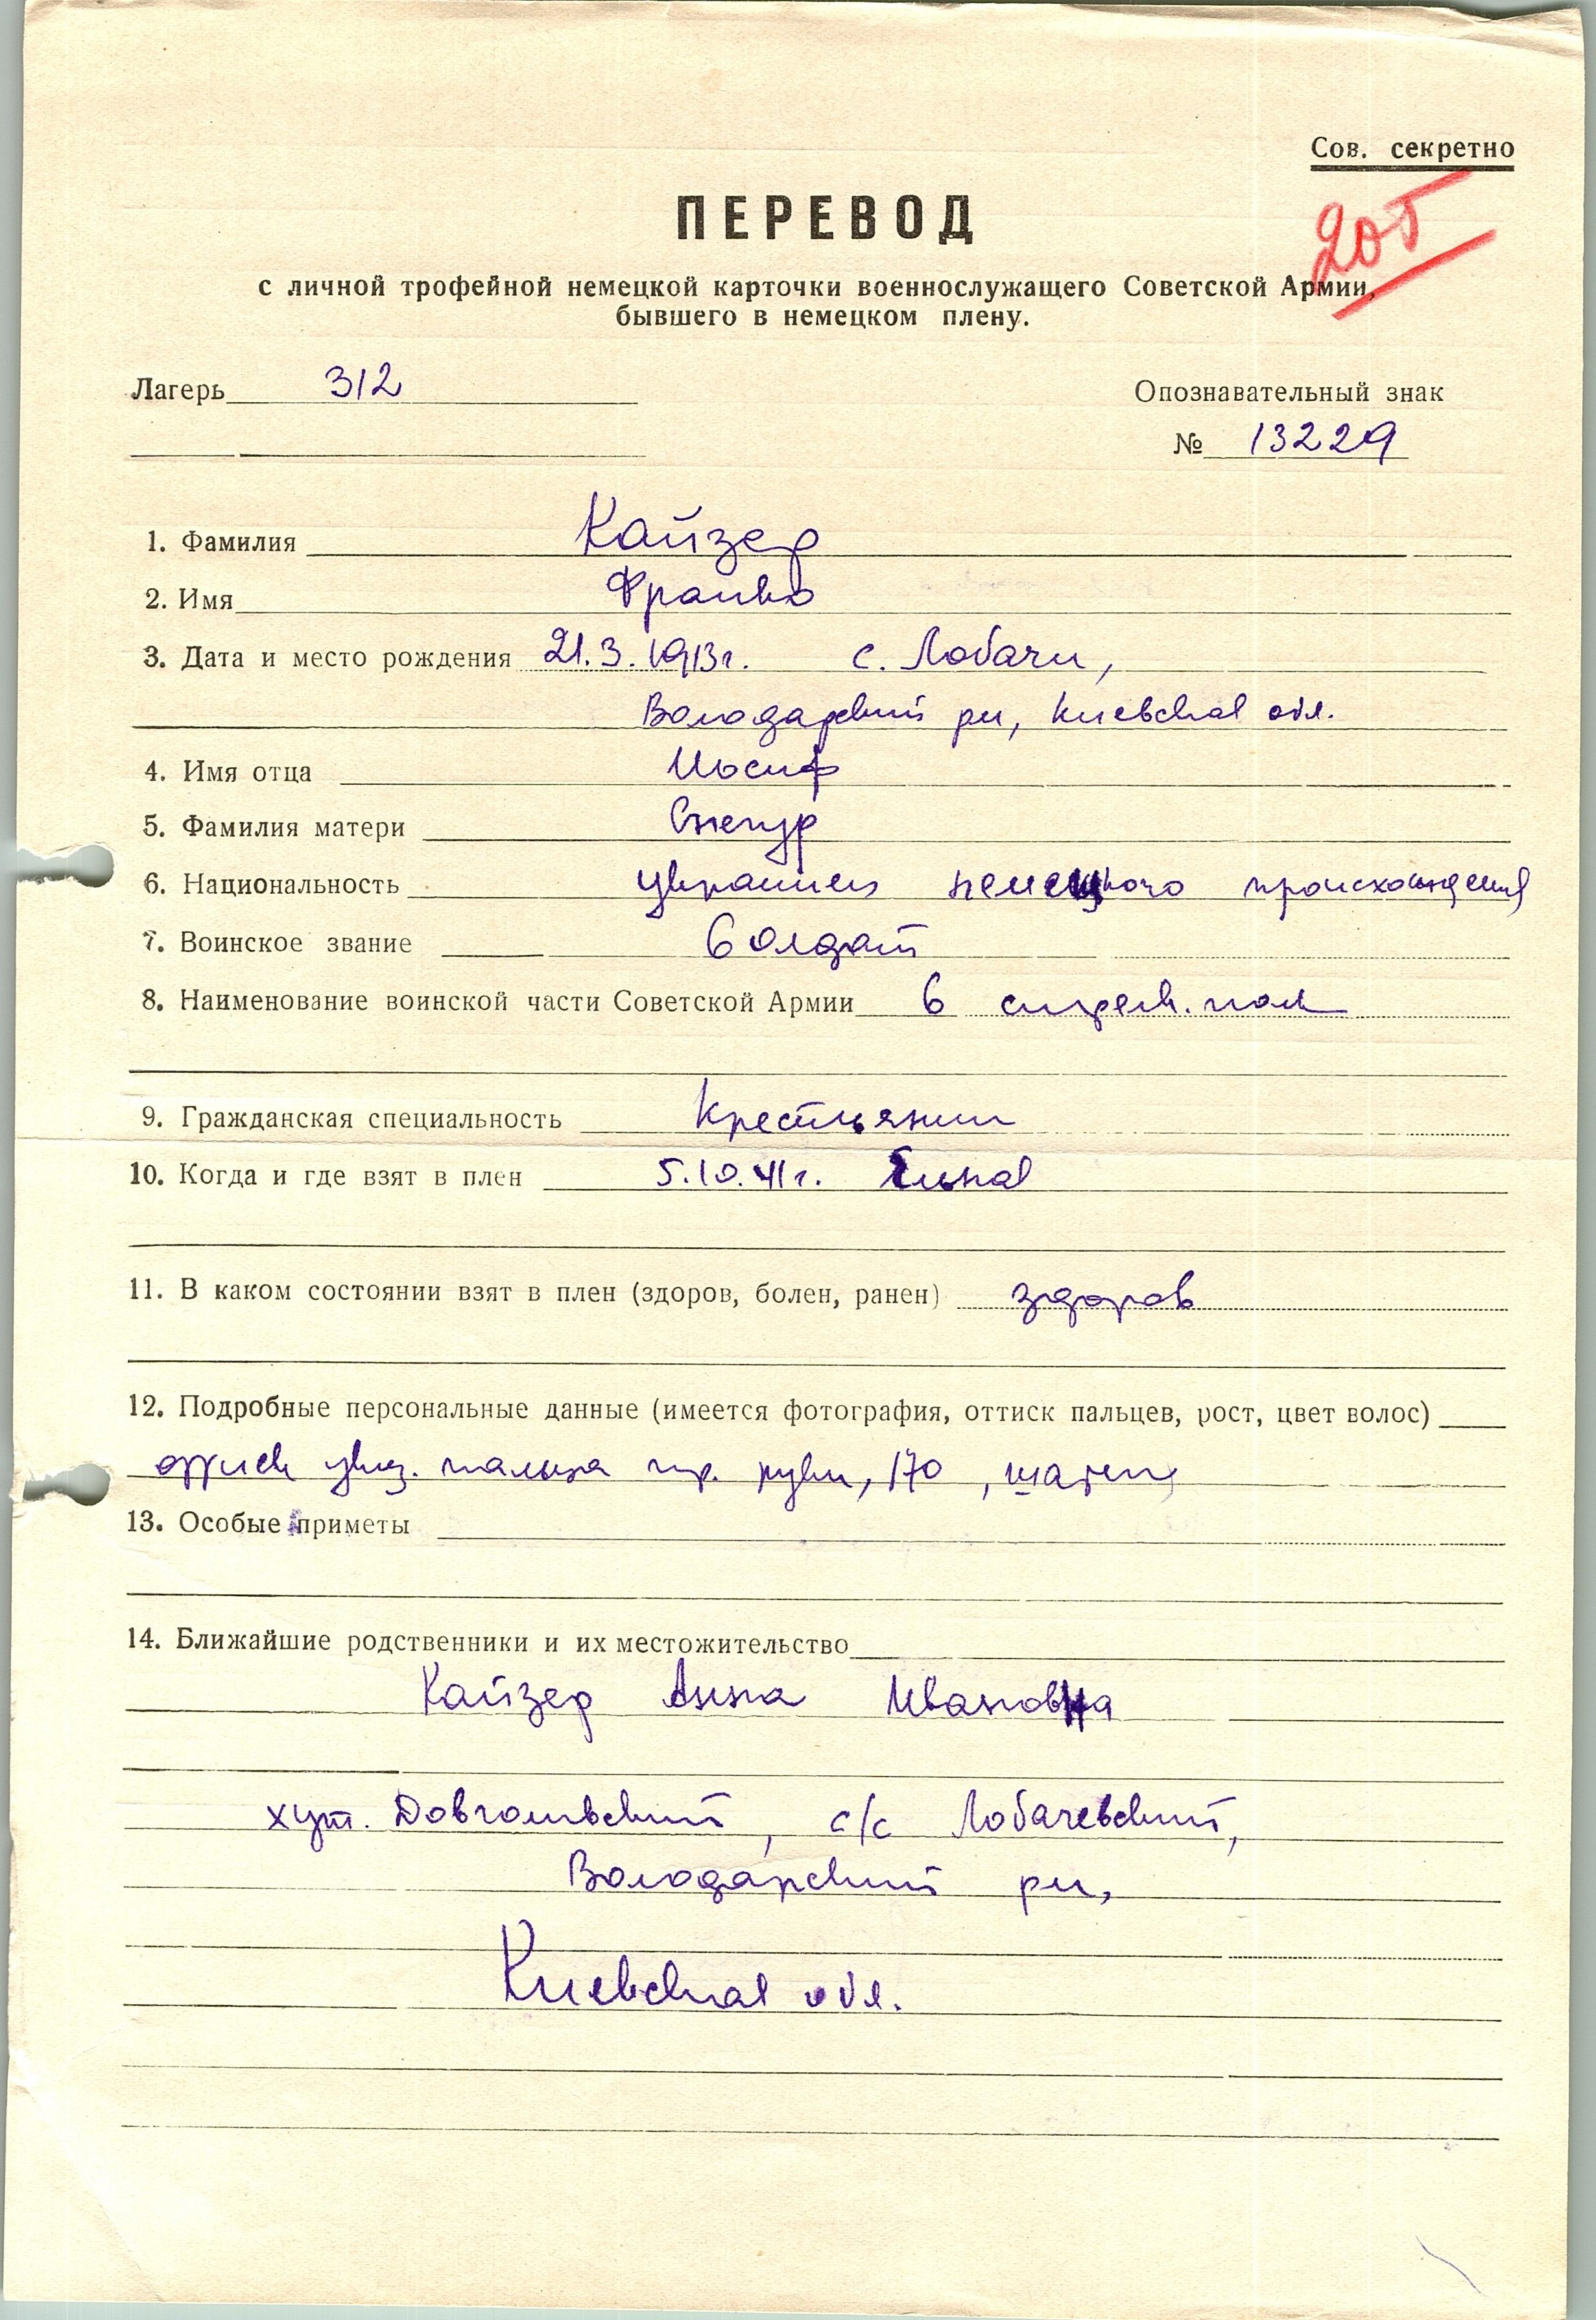 Сов. секретно
205
ПЕРЕВОД
с личной трофейной немецкой карточки военнослужащего Советской Армии,
бывшего в немецком плену.
Лагерь 312 Опознавательный знак
№ 13229
1. Фамилия Кайзер
2. Имя Франко
3. Дата и место рождения 21.3.1913г. с. Лобачи,
Володарский рн, Киевская обл.
4. Имя отца Иосиф
5. Фамилия матери Снегур
6. Национальность украинец немецкого происхождения
7. Воинское звание Солдат
8. Наименование воинской части Советской Армии 6 стрелк. полк
9. Гражданская специальность Крестьянин
10. Когда и где взят в плен 5.10.41г. Ельна
11. В каком состоянии взят в плен (здоров, болен, ранен) здоров
12. Подробные персональные данные (имеется фотография, оттиск пальцев, рост, цвет волос)
оттиск указ. пальца пр. руки, 170, шатен
13. Особые приметы
14. Ближайшие родственники и их местожительство
Кайзер Анна Ивановна
хут. с/с Лобачевский,
Володарский рн,
Киевская обл.